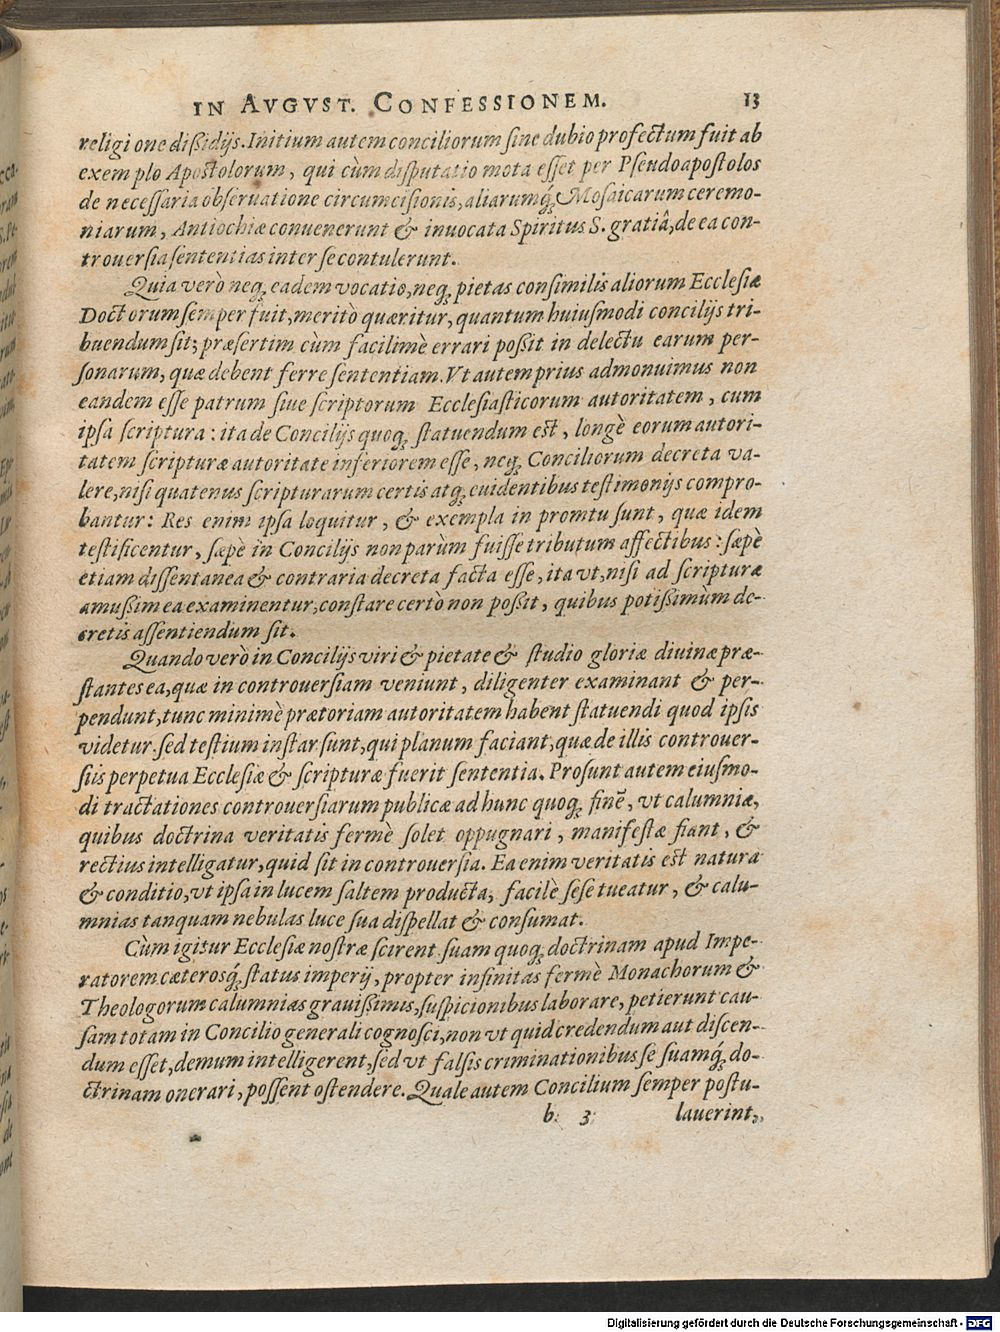 IN AVGVST. CONFESSIONEM. 13
religi one dißidijs. Initium autem conciliorum ſine dubio profectum fuit ab
exem plo Apostolorum, qui cùm diſputatio mota eſſet per Pſeudoapostolos
de neceſſaria obſeruatione circumciſionis, aliarumq́; Moſaicarum ceremo-
niarum, Antiochiæ conuenerunt & inuocata Spiritus S. gratiâ, de ea con-
trouerſia ſententias inter ſe contulerunt.
Quia verò neq; eadem vocatio, neq; pietas conſimilis aliorum Eccleſiæ
Doctorum ſemper fuit, meritò quæritur, quantum huiuſmodi concilijs tri-
buendum ſit; præſertim cùm facilimè errari poßit in delectu earum per-
ſonarum, quæ debent ferre ſententiam. Vt autem prius admonuimus non
eandem eſſe patrum ſiue ſcriptorum Eccleſiaſticorum autoritatem, cum
ipſa ſcriptura: ita de Concilijs quoq; ſtatuendum eſt, longè eorum autori-
tatem ſcripturæ autoritate inferiorem eſſe, neq; Conciliorum decreta va-
lere, niſi quatenus ſcripturarum certis atq; euidentibus teſtimonijs compro-
bantur: Res enim ipſa loquitur, & exempla in promtu ſunt, quæ idem
teſtificentur, ſæpè in Concilijs non parùm fuiſſe tributum affectibus: ſæpè
etiam diſſentanea & contraria decreta facta eſſe, ita vt, niſi ad ſcripturæ
amußim ea examinentur, conſtare certò non poßit, quibus potißimùm de-
cretis aſſentiendum ſit.
Quando verò in Concilijs viri & pietate & ſtudio gloriæ diuinæ præ-
ſtantes ea, quæ in controuerſiam veniunt, diligenter examinant & per-
pendunt, tunc minimè prætoriam autoritatem habent ſtatuendi quod ipſis
videtur. ſed teſtium inſtar ſunt, qui planum faciant, quæ de illis controuer-
ſiis perpetua Eccleſiæ & ſcripturæ fuerit ſententia. Proſunt autem eiuſmo-
di tractationes controuerſiarum publicæ ad hunc quoq; finẽ, vt calumniæ,
quibus doctrina veritatis fermè ſolet oppugnari, manifeſtæ fiant, &
rectius intelligatur, quid ſit in controuerſia. Ea enim veritatis eſt natura
& conditio, vt ipſa in lucem ſaltem producta, facilè ſeſe tueatur, & calu-
mnias tanquam nebulas luce ſua diſpellat & conſumat.
Cùm igitur Eccleſiæ noſtræ ſcirent ſuam quoq; doctrinam apud Impe-
ratorem cæterosq́; ſtatus imperij, propter infinitas fermè Monachorum &
Theologorum calumnias grauißimis, ſuſpicionibus laborare, petierunt cau-
ſam totam in Concilio generali cognoſci, non vt quid credendum aut diſcen-
dum eſſet, demum intelligerent, ſed vt falſis criminationibus ſe ſuamq́; do-
ctrinam onerari, poſſent oſtendere. Quale autem Concilium ſemper poſtu-
b 3 lauerint,
Digitalisierung gefördert durch die Deutsche Forschungsgemeinschaft - DFG